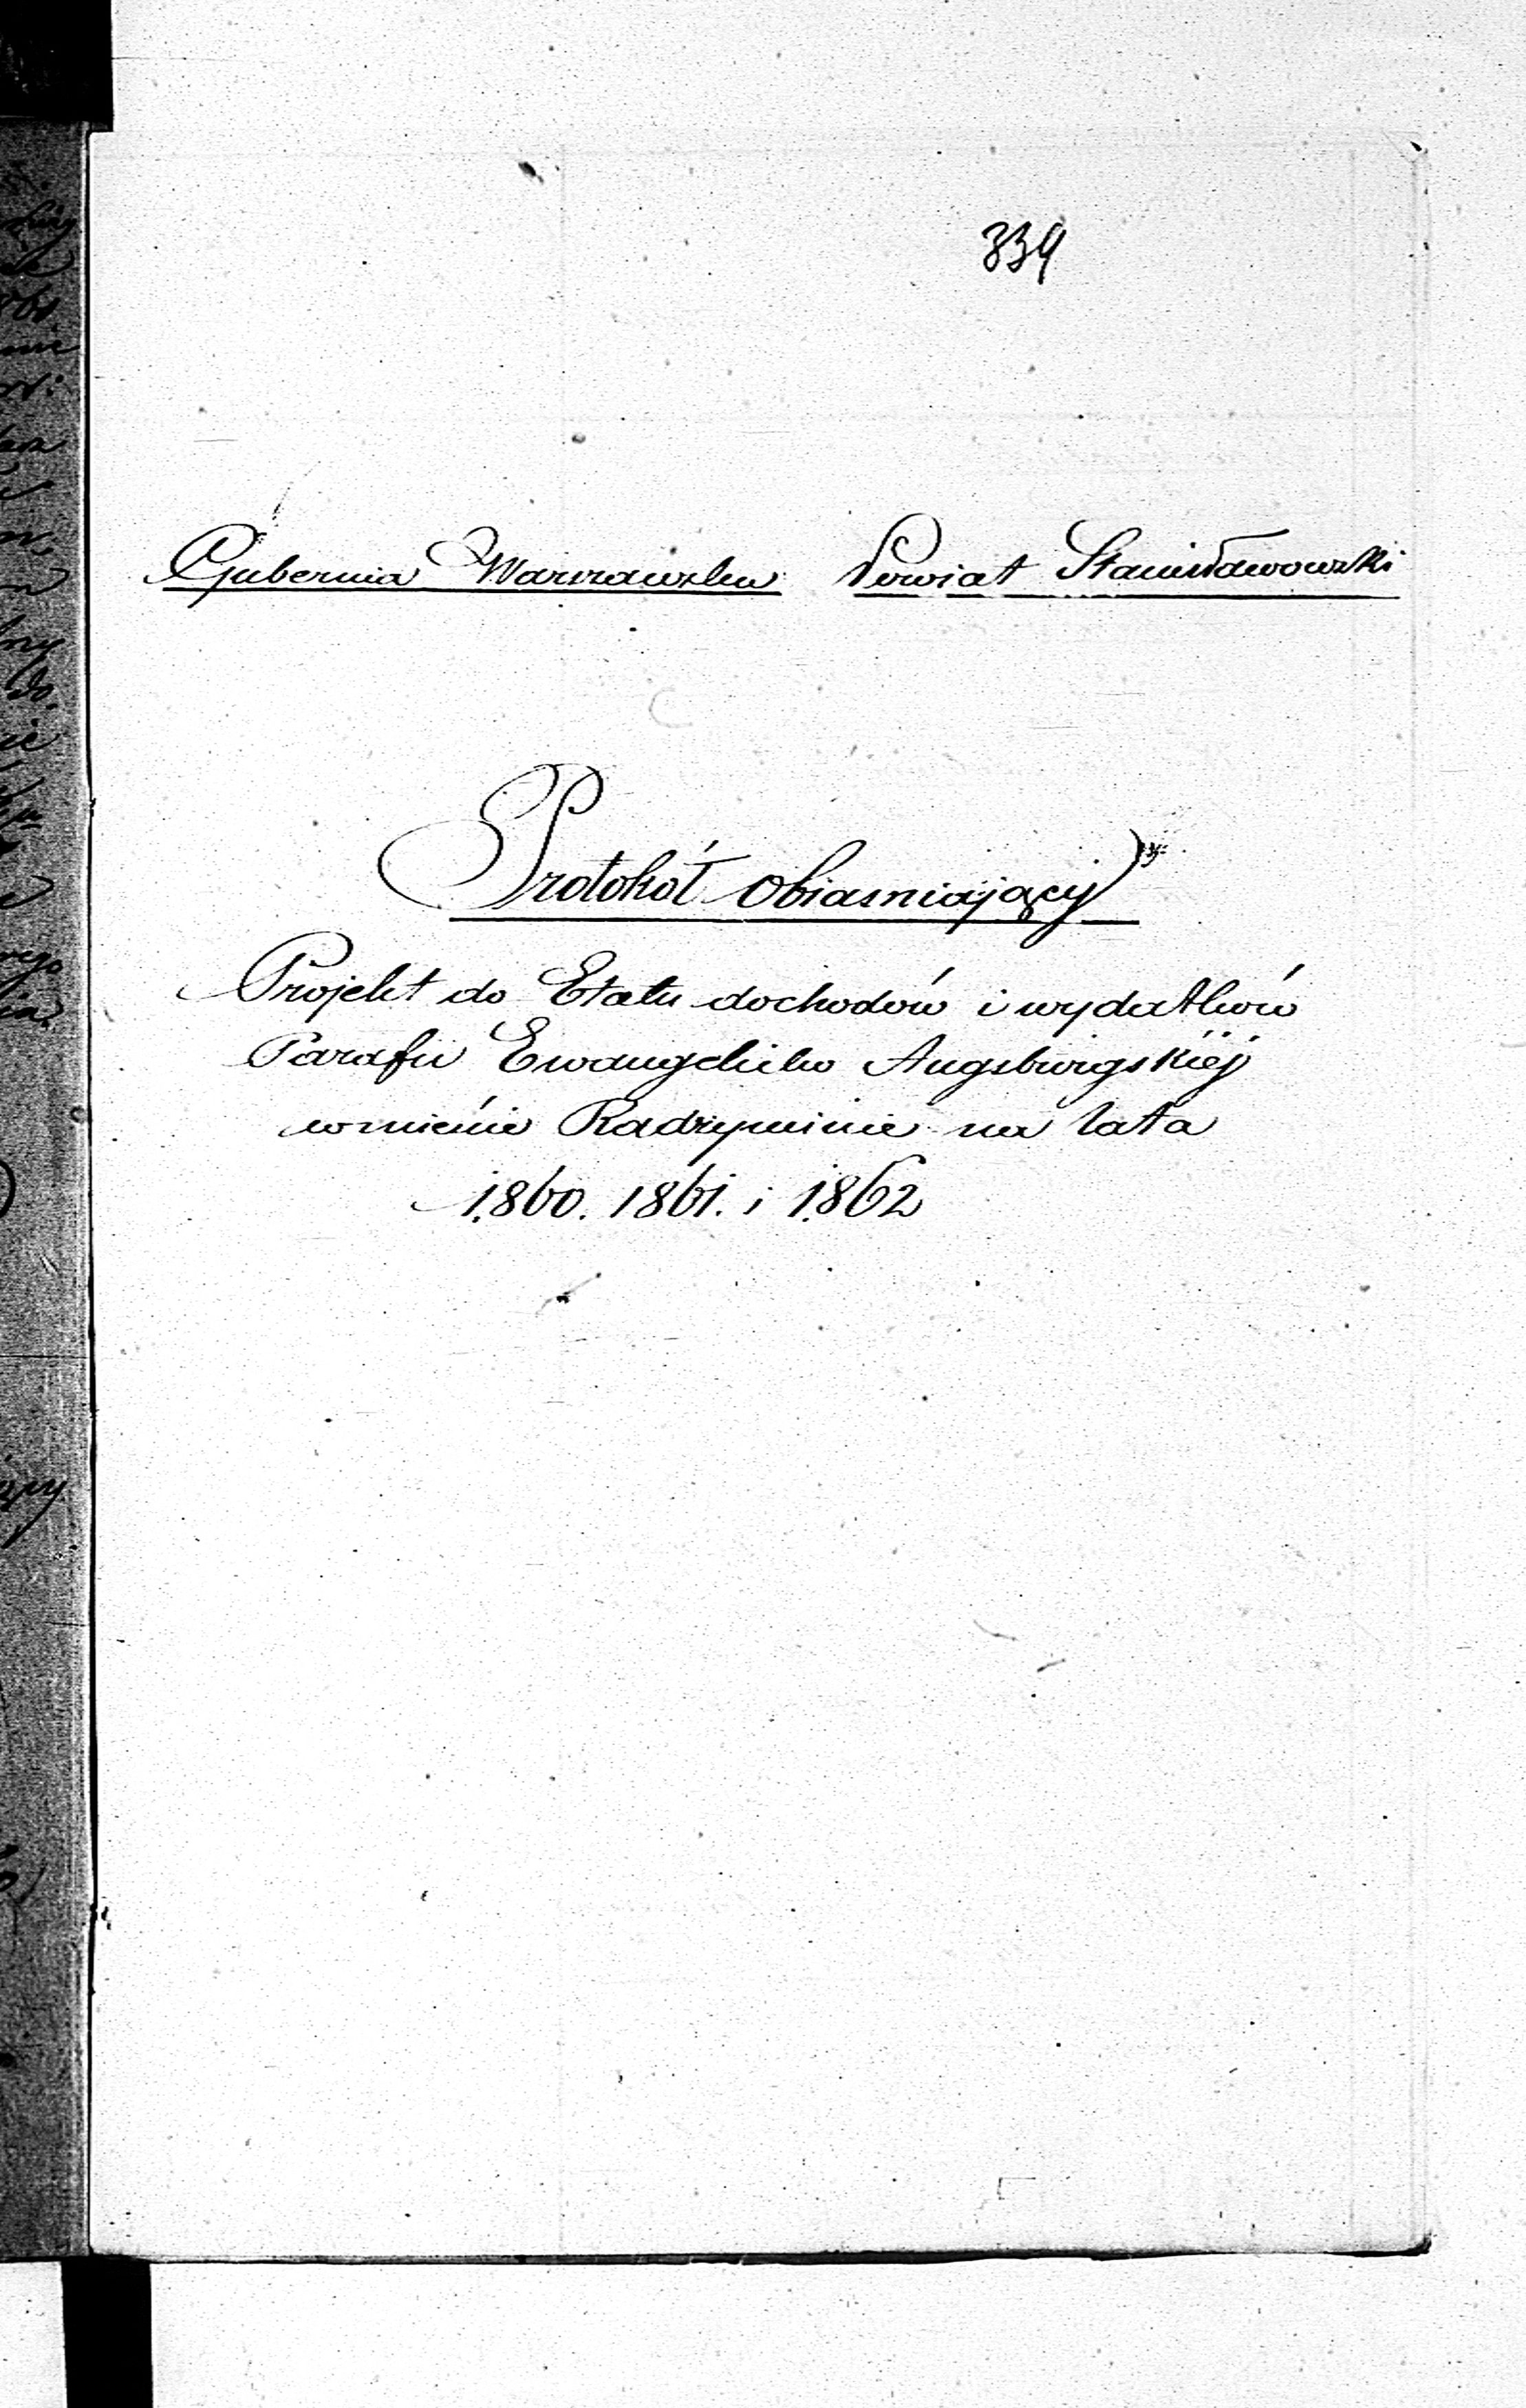 339
Gubernia Warszawska Powiat Stanisławowski
Protokół obiasniający
Projekt do Etatu dochodów i wydatków
Parafii Ewangelicko Augsburgskiéj
w mieście Radzyminie na lata
1860. 1861. i 1862